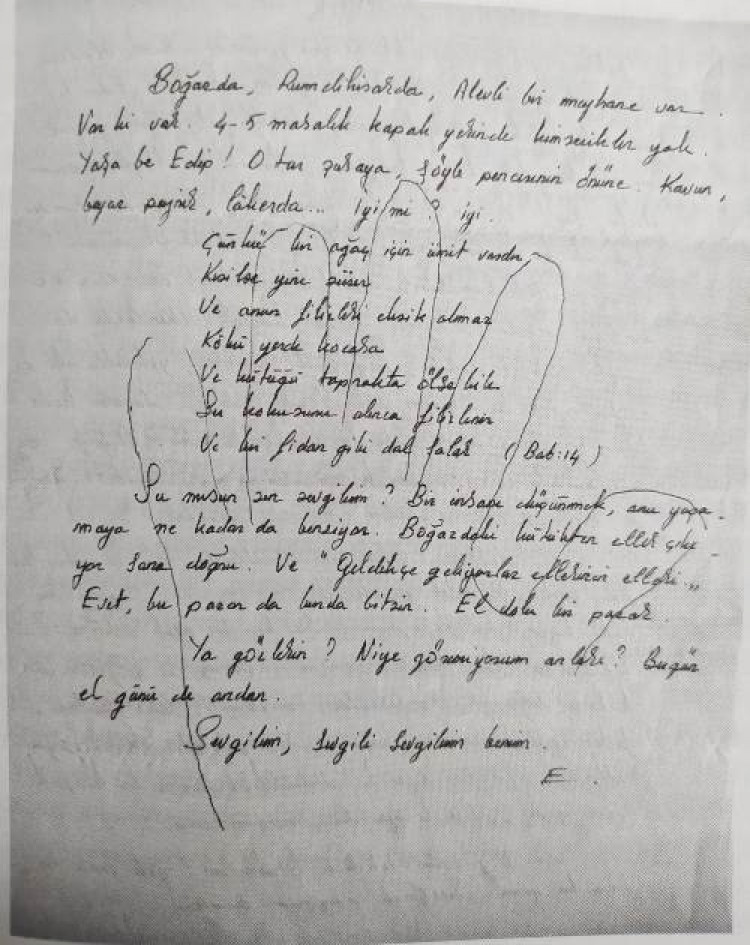 Boğazda, Rumelihisarda, Alevli bir meyhane var.
Var ki var. 4-5 masalık kapalı yerinde kimsecikler yok.
Yaşa be Edip! Otur şuraya, şöyle pencerenin önüne. Kavun,
beyaz peynir, lâkerda... iyi mi? iyi.
Çünkü bir ağaç için ümit vardır
Kesilse yine sürer
Ve onun filizleri eksik olmaz
Kökü yerde kocasa
Ve kütüğü toprakta ölse bile
Su kokusunu alınca filizlenir
Ve bir fidan gibi dal salar (Bab:14)
Su musun sen sevgilim? Bir insanı düşünmek, onu yaşa-
maya ne kadar da benziyor. Boğazdaki kütükten eller çıkı-
yor sana doğru. Ve "Geldikçe geliyorlar ellerinin elleri„
Evet, bu pazar da burda bitsin. El dolu bir pazar.
Ya gözlerin? Niye görmüyorum onları? Bugün
el günü de ondan.
Sevgilim, sevgili sevgilim benim.
E.